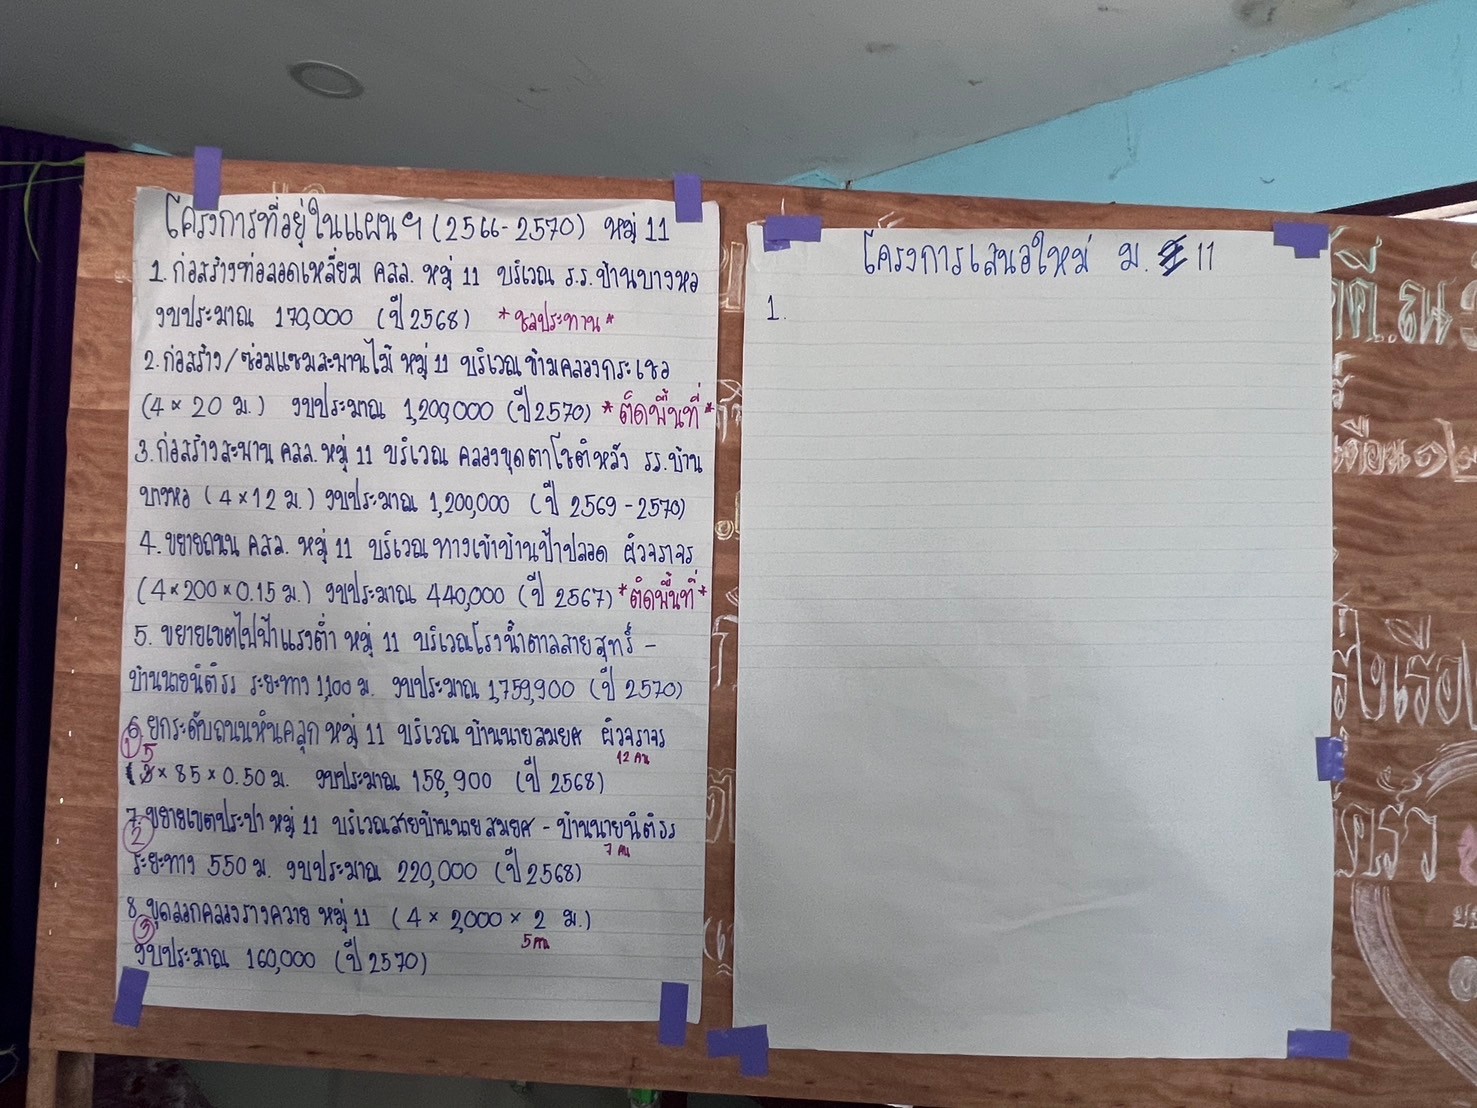 โครงการที่อยู่ในแผนฯ (2566-2570) หมู่ 11
1. ก่อสร้างท่อลอดเหลี่ยม คสล. หมู่ 11 บริเวณ ร.ร. บ้านบางหอ
งบประมาณ 170,000 (ปี 2568) *ชลประทาน*
2. ก่อสร้าง/ซ่อมแซมสะพานไม้ หมู่ 11 บริเวณ ข้ามคลองกระเชอ
(4 × 20 ม.) งบประมาณ 1,200,000 (ปี 2570) *ติดพื้นที่*
3. ก่อสร้างสะพาน คสล. หมู่ 11 บริเวณ คลองขุดตาโชติหลัง รร. บ้าน
บางหอ (4 × 12 ม.) งบประมาณ 1,200,000 (ปี 2569 - 2570)
4. ขยายถนน คสล. หมู่ 11 บริเวณ ทางเข้าบ้านป้าปลอด ผิวจราจร
(4 × 200 × 0.15 ม.) งบประมาณ 440,000 (ปี 2567) *ติดพื้นที่*
5. ขยายเขตไฟฟ้าแรงต่ำ หมู่ 11 บริเวณโรงน้ำตาลสาย -
บ้านนายนิติธร ระยะทาง 1,100 ม. งบประมาณ 1,759,900 (ปี 2570)
6. ยกระดับถนนหินคลุก หมู่ 11 บริเวณ บ้านนายสมยศ ผิวจราจร
① 5 12 คน
× 85 × 0.50 ม. งบประมาณ 158,900 (ปี 2568)
7. ขยายเขตประปา หมู่ 11 บริเวณสายบ้านนายสมยศ - บ้านนายนิติธร
② 7 คน
ระยะทาง 550 ม. งบประมาณ 220,000 (ปี 2568)
8. ขุดลอกคลองรางควาย หมู่ 11 (4 × 2,000 × 2 ม.)
③ 5 คน
งบประมาณ 160,000 (ปี 2570)
โครงการเสนอใหม่ ม. 11
1.